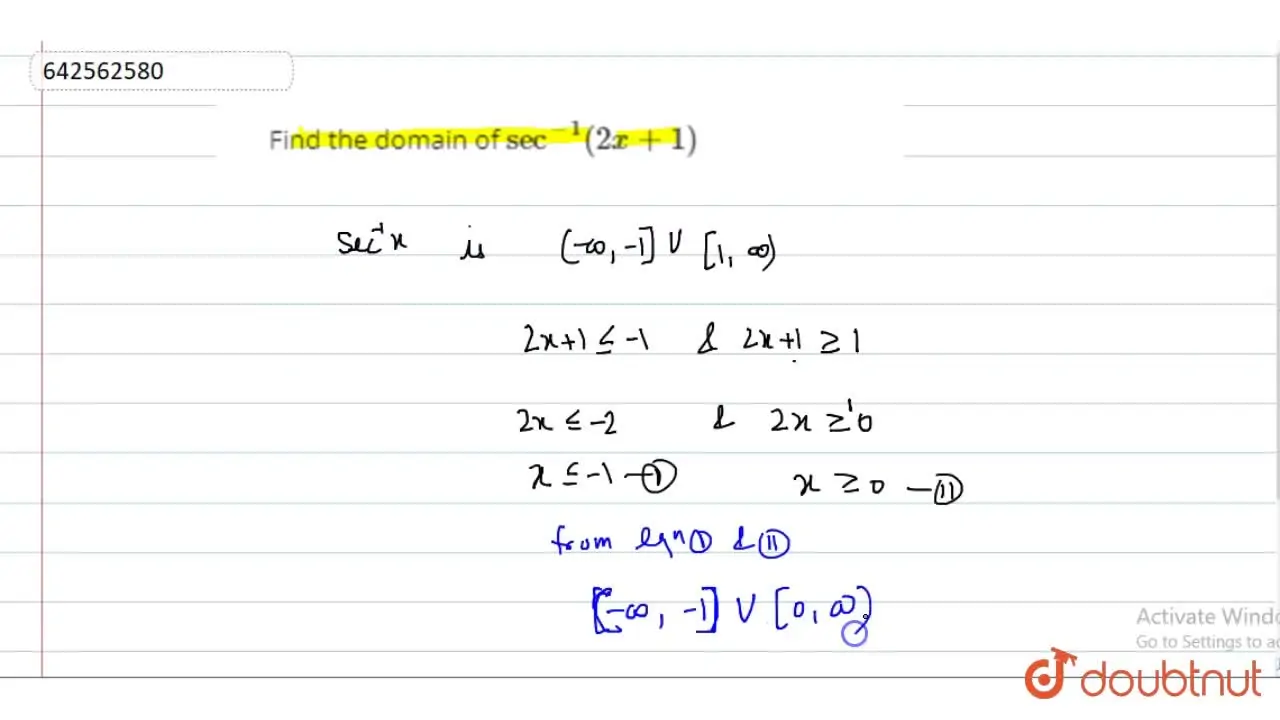 642562580
Find the domain of sec⁻¹(2x + 1)
sec⁻¹x is (-∞, -1] ∪ [1, ∞)
2x+1 ≤ -1 & 2x+1 ≥ 1
2x ≤ -2 & 2x ≥ 0
x ≤ -1 —Ⓘ x ≥ 0 —⑪
from eqn Ⓘ & ⑪
(-∞, -1] ∪ [0, ∞)
Activate Windo
Go to Settings to ac
doubtnut